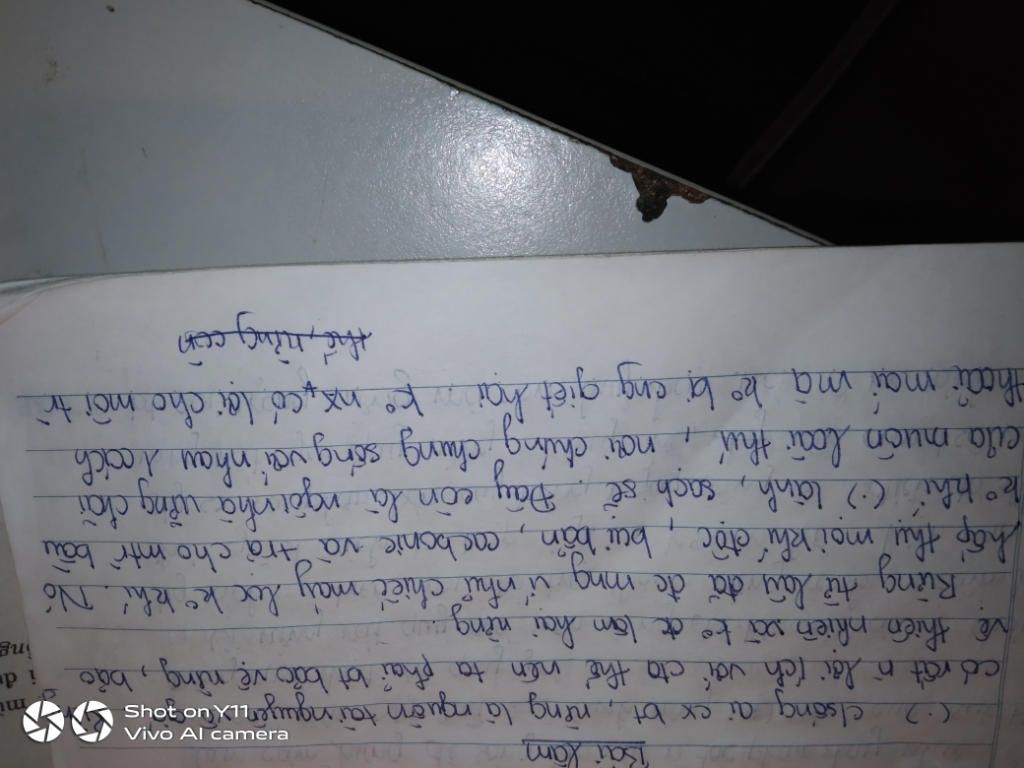 Bài làm
(.) csống ai cx bt, rừng là nguồn tài nguyên
có rất n lợi ích vs cta thế nên ta phải bt bảo vệ rừng, bảo
vệ thiên nhiên và ko đc làm hại rừng.
Rừng từ lâu đã đc mng ví như chiếc máy lọc ko khí. Nó
hấp thụ mọi khí độc, bụi bẩn, cacbonic và trả cho mtr bầu
ko khí (.) lành, sạch sẽ. Đây còn là ngôi nhà vững chãi
của muôn loài thú, nơi chúng chung sống với nhau 1 cách
thoải mái mà ko bị cng giết hại. ko nx, có lợi cho môi tr
thế, rừng còn
Shot on Y11
Vivo AI camera